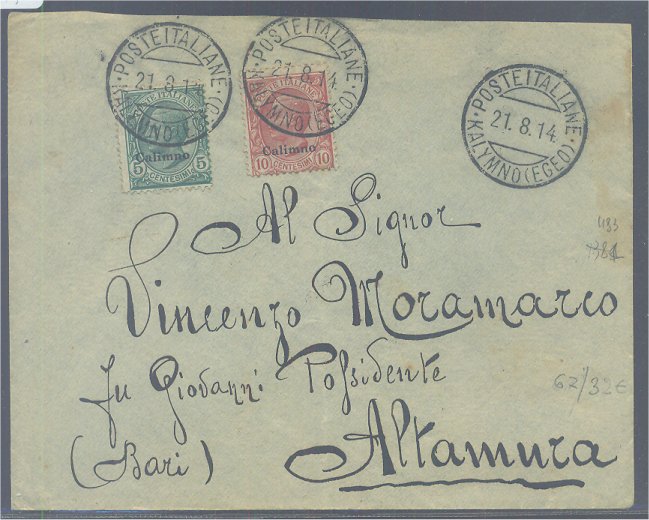 POSTE ITALIANE
21.8.14
KALYMNO (EGEO)
POSTE ITALIANE
21.8.14
KALYMNO (EGEO)
POSTE ITALIANE
21.8.14.
KALYMNO (EGEO)
POSTE ITALIANE
Calimno
5 5
CENTESIMI
POSTE ITALIANE
Calimno
10 10
CENTESIMI
Al Signor
Vincenzo Moramarco
fu Giovanni Possidente
(Bari) Altamura
62/32€